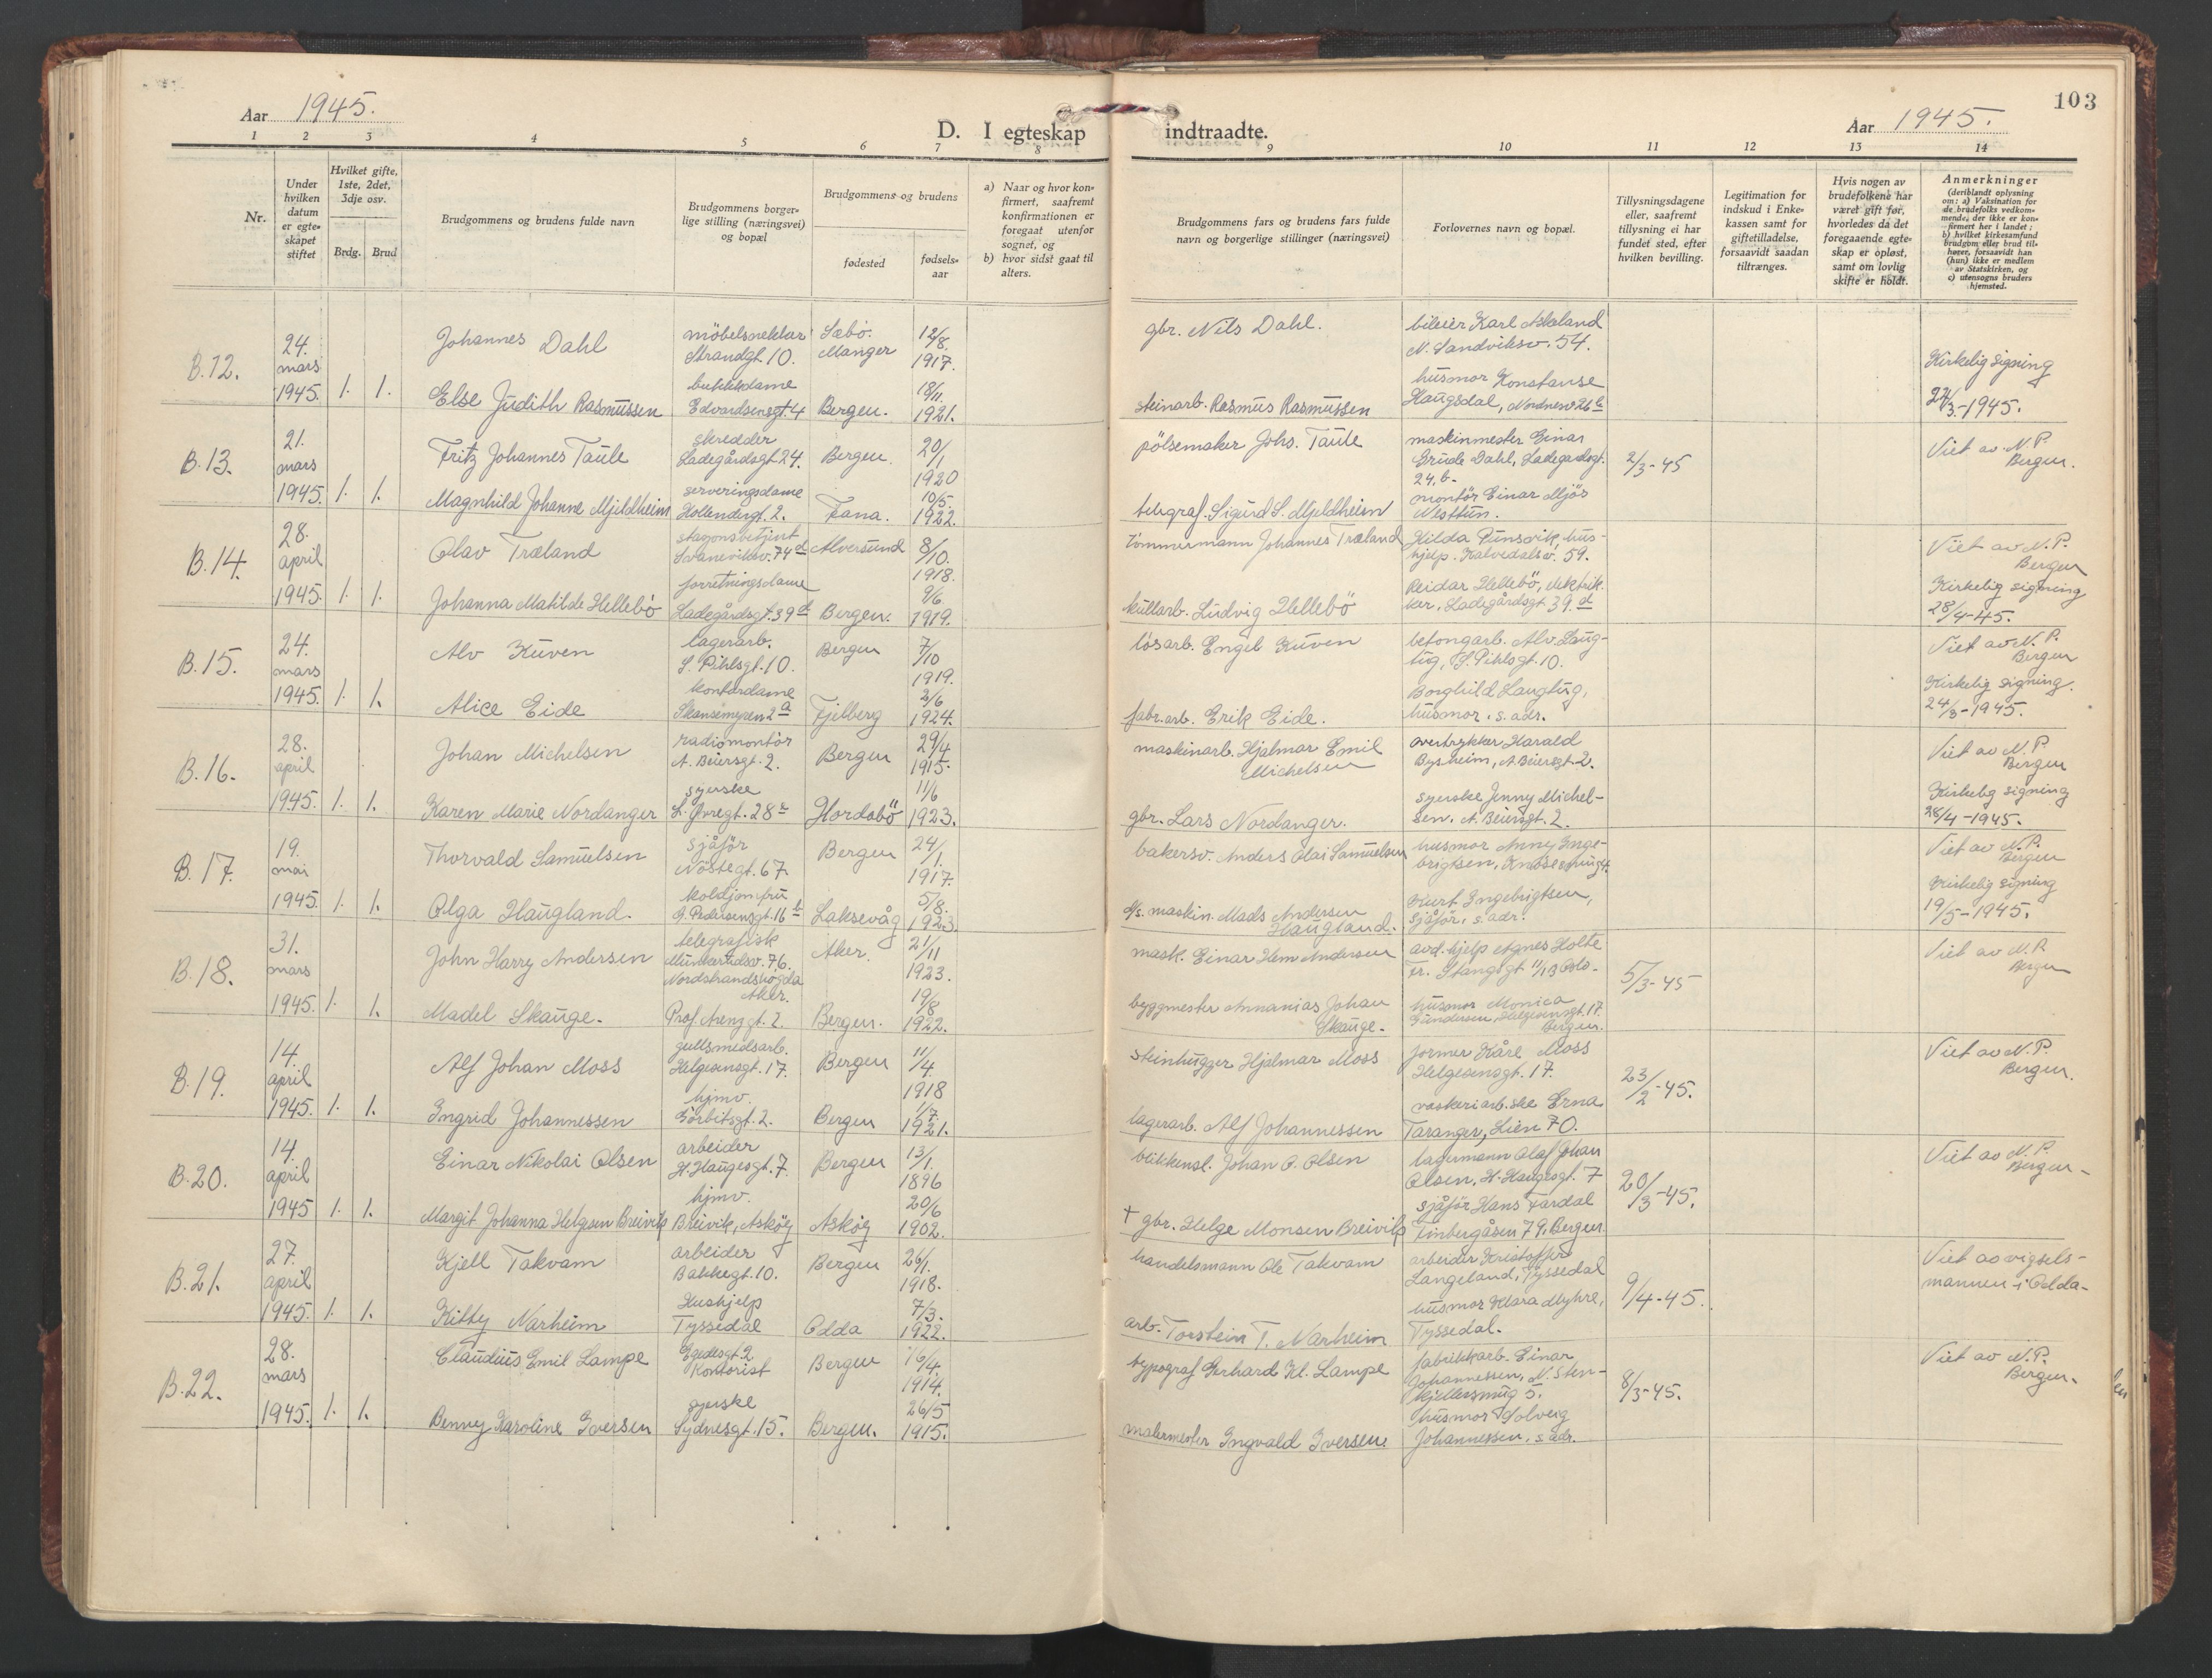 103
Aar 1945.
D. I egteskap indtraadte.
Aar 1945.
1 2 3 4 5 6 7 8 9 10 11 12 13 14
Nr.
Under hvilken datum er egte-skapet stiftet
Hvilket gifte, 1ste, 2det, 3dje osv.
Brdg. Brud
Brudgommens og brudens fulde navn
Brudgommens borger-lige stilling (næringsvei) og bopæl
Brudgommens og brudens
fødested
fødsels-aar
a) Naar og hvor kon-firmert, saafremt konfirmationen er foregaat utenfor sognet, og
b) hvor sidst gaat til alters.
Brudgommens fars og brudens fars fulde navn og borgerlige stillinger (næringsvei)
Forlovernes navn og bopæl.
Tillysningsdagene eller, saafremt tillysning ei har fundet sted, efter hvilken bevilling.
Legitimation for indskud i Enke-kassen samt for giftetilladelse, forsaavidt saadan tiltrænges.
Hvis nogen av brudefolkene har været gift før, hvorledes da det foregaaende egte-skap er opløst, samt om lovlig skifte er holdt.
Anmerkninger
(deriblandt oplysning om: a) Vaksination for de brudefolks vedkom-mende, der ikke er kon-firmert her i landet; b) hvilket kirkesamfund brudgom eller brud til-hører, forsaavidt han (hun) ikke er medlem av Statskirken, og c) utensogns bruders hjemsted.
B.12. 24. mars 1945. 1. 1.
Johannes Dahl
Strandgt. 10.
Sæbö. Manger
12/8. 1917.
gbr. Nils Dahl.
bileier Karl Askeland
N. Sandviksv. 54.
Else Judith Rasmussen
butikkdame
Edvardsensgt. 4
Bergen.
18/11. 1921.
steinarb. Rasmus Rasmussen
husmor Konstanse
Haugsdal, Nordnesv 26 a
Kirkelig signing
24/3.-1945.
B.13. 21. mars 1945. 1. 1.
Fritz Johannes Taule
skredder
Ladegårdsgt 24.
Bergen.
20/1 1920
pölsemaker Johs. Taule
maskinmester Einar
Grude Dahl, Ladegårdsgt.
24, b.
2/3-45
Viet av N.P.
Bergen.
Magnhild Johanne Mjeldheim
serveringsdame
Hollendergt. 2.
Fana.
10/5. 1922.
telegraf. Sigurd S. Mjeldheim
montör Einar Mjös
Nesttun.
B.14. 28. april 1945. 1. 1.
Olav Træland
stasjonsbetjent
Svaneviksv. 74 d
Alversund
8/10. 1918.
tömmermann Johannes Træland
hus-
hjelp. Kalvedalsv. 59.
Viet av N.P.
Bergen
Johanna Matilde Hellebö
forretningsdame
Ladegårdsgt. 39 d
Bergen.
9/6 1919.
kullarb. Ludvig Hellebö
Reidar Hellebö, elektrik-
ker, Ladegårdsgt 39 d
Kirkelig signing
28/4-45.
B.15. 24. mars 1945. 1. 1.
Alv Kuven
lagerarb.
S. Pihlsgt. 10.
Bergen
7/10 1919.
lösarb. Engel Kuven
betongarb. Alv Laug-
tug, S. Pihlsgt. 10.
Viet av N.P.
Bergen
Alice Eide
kontordame
Skansemyren 2 a
Fjelberg
2/6 1924.
fabr.arb. Erik Eide.
Borghild Laugtug,
husmor, s. adr.
Kirkelig signing.
24/3-1945.
B.16. 28. april 1945. 1. 1.
Johan Michelsen
radiomontör
A. Beiersgt. 2.
Bergen
29/4 1915.
maskinarb. Hjalmar Emil
Michelsen
overtrykker Harald
Bysheim, A. Beiersgt. 2.
Viet av N.P.
Bergen
Karen Marie Nordanger
syerske
L. Øvregt. 28 a
Hordabö
11/6 1923.
gbr. Lars Nordanger.
syerske Jenny Michel-
sen, A. Beiersgt. 2.
Kirkelig signing
28/4-1945.
B.17. 19. mai 1945. 1. 1.
Thorvald Samuelsen
sjåför
Nöstegt. 67.
Bergen
24/1. 1917.
bakersv. Anders Olai Samuelsen
husmor Anny Inge-
brigtsen,
Viet av N.P.
Bergen
Olga Haugland.
koldjomfru
G. Pedersensgt. 16 b
Laksevåg
5/8. 1923.
d/s. maskin. Mads Andersen
Haugland.
Kurt Ingebrigtsen,
sjåför, s. adr.
Kirkelig signing
19/5-1945.
B.18. 31. mars 1945. 1. 1.
John Harry Andersen
telegrafisk
Munkerudsv. 76.
Nordstrandshögda
Aker.
Aker.
21/11 1923.
mask. Einar Hem Andersen
avd. hjelp Agnes Holte
Fr. Stangsgt 11/13 Oslo-
5/3-45
Viet av N.P.
Bergen
Madel Skauge.
Bergen.
19/8 1922.
byggmester Annanias Johan
Skauge-
husmor Monica
Gundersen, Helgesensgt. 17.
Bergen.
B.19. 14. april 1945. 1. 1.
Alf Johan Moss
gullsmedsarb.
Helgesensgt. 17.
Bergen
11/4. 1918
steinhugger Hjalmar Moss
former Kåre Moss
Helgesensgt. 17.
23/2-45.
Viet av N.P.
Bergen.
Ingrid Johannessen
hjmv.
Görbitzgt. 2.
Bergen
1/7. 1921.
lagerarb. Alf Johannessen
vaskeriarb.ske Erna
Taranger, Lien 70.
B.20. 14. april 1945 1. 1.
Einar Nikolai Olsen
arbeider
H. Haugesgt. 7.
Bergen
13/1. 1896
Johan O. Olsen
lagermann Olaf Johan
Olsen, H. Haugesgt. 7
20/3-45.
Viet av N.P.
Bergen-
Margit Johanna Helgsen Breivik
hjmv.
Breivik, Asköy
Asköy
20/6 1902.
+ gbr. Helge Monsen Breivik
sjåför Hans Fardal
Finbergåsen 79, Bergen
B.21. 27. april 1945. 1. 1.
Kjell Takvam
arbeider
Bakkegt. 10.
Bergen
26/1. 1918.
handelsmann Ole Takvam
arbeider Kristoffer
Langeland, Tyssedal
9/4-45.
Viet av vigsels-
mannen i Odda-
Kitty Narheim
Hushjelp
Tyssedal
Odda
7/3. 1922.
arb. Torstein T. Narheim
husmor Klara Myhre,
Tyssedal.
B.22. 28. mars 1945. 1. 1.
Claudius Emil Lampe
Egedesgt. 2
Kontorist
Bergen
16/4. 1914.
typograf Gerhard Kl. Lampe
fabrikkarb. Einar
Johannessen, N. Sten-
kjellersmug 5.
8/3-45.
Viet av N.P.
Bergen.
Benny Karoline Iversen
syerske
Sydnesgt. 15.
Bergen.
26/5 1915.
malermester Ingvald Iversen.
husmor Solveig
Johannessen, s. adr.